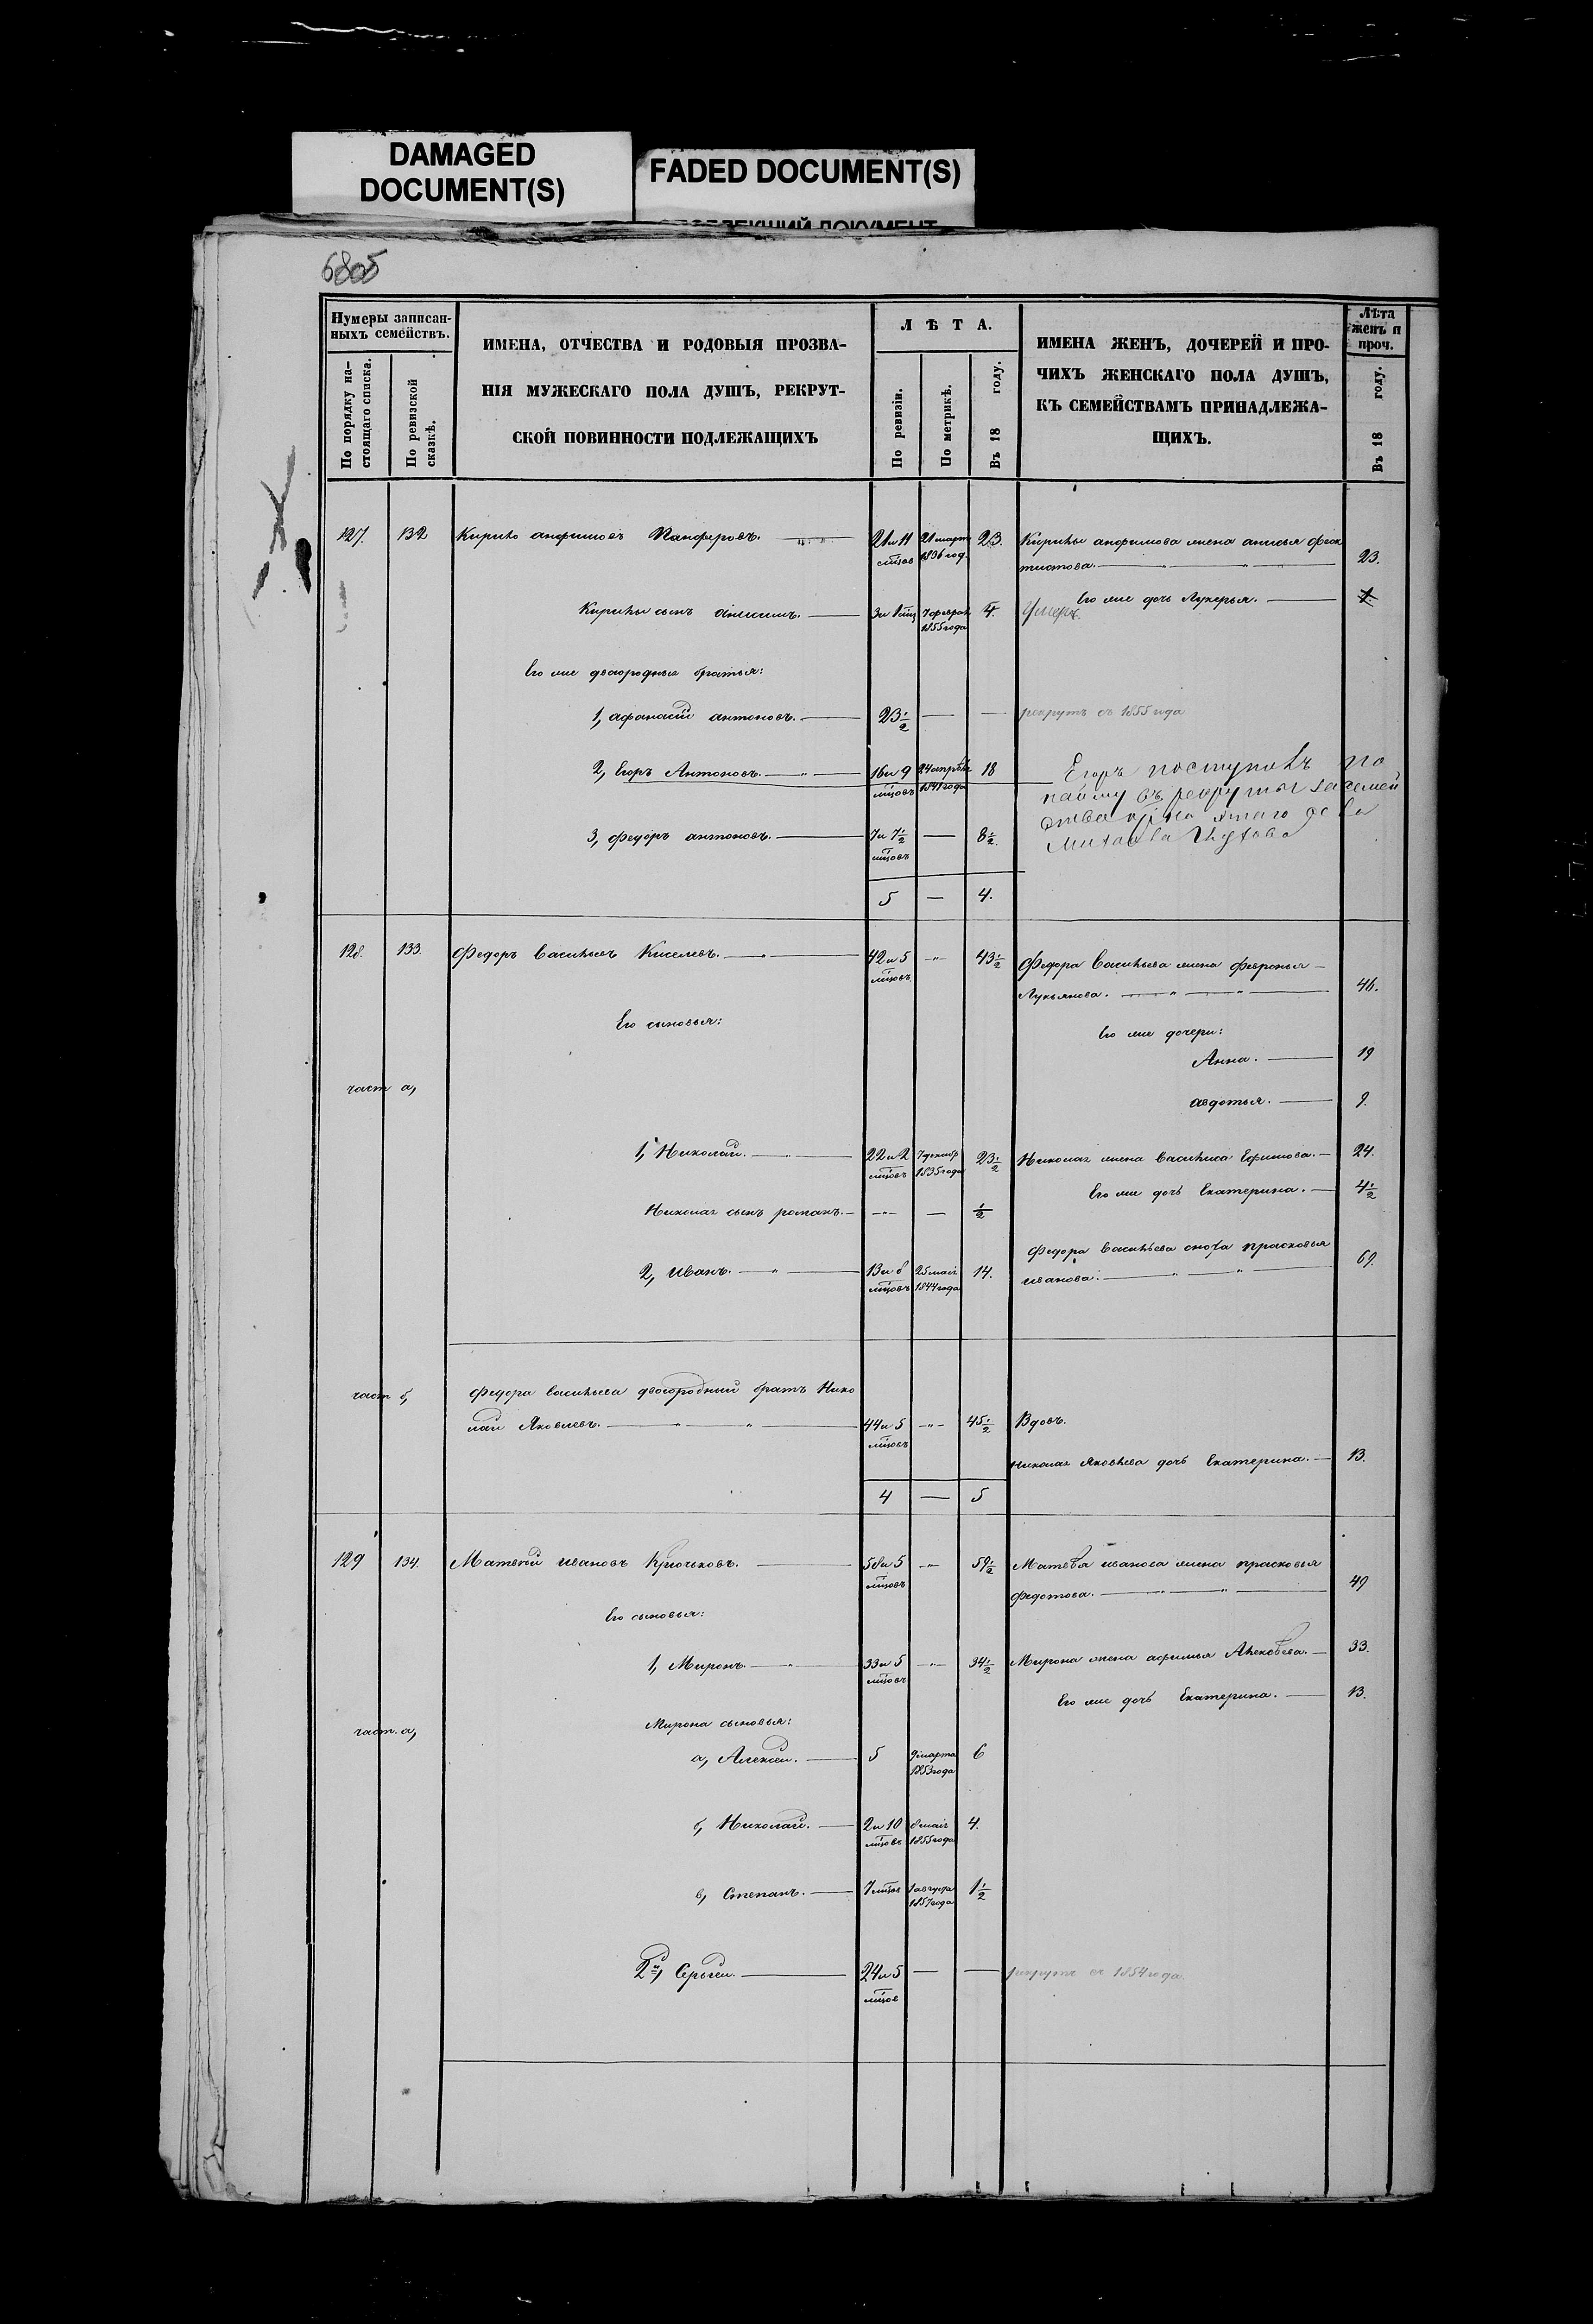 DAMAGED
DOCUMENT(S)
FADED DOCUMENT(S)
6805
Нумеры записан-
ныхъ семействъ.
По порядку на-
стоящаго списка.
По ревизской
сказкѣ.
ИМЕНА, ОТЧЕСТВА И РОДОВЫЯ ПРОЗВА-
НІЯ МУЖЕСКАГО ПОЛА ДУШЪ, РЕКРУТ-
СКОЙ ПОВИННОСТИ ПОДЛЕЖАЩИХЪ
ЛѢТА.
По ревизіи.
По метрикѣ.
Въ 18 году.
ИМЕНА ЖЕНЪ, ДОЧЕРЕЙ И ПРО-
ЧИХЪ ЖЕНСКАГО ПОЛА ДУШЪ,
КЪ СЕМЕЙСТВАМЪ ПРИНАДЛЕЖА-
ЩИХЪ.
Лѣта
женъ и
проч.
Въ 18 году.
127. 132 Кирило анфимовъ Панферовъ. 21 и 11 21 март 23. Кирилы анфимова жена анисья феок
1836 год. тистова. 23.
Кирилы сынъ 3 и 1 7 феврал 4. Умеръ. Его же дочь Лукерья.
1855 года
Его же двоюродные братья:
1, афанасій антоновъ. 23 1/2 — — рекрутъ съ 1855 года
2, Егоръ Антоновъ. 16 и 9 24 апрѣля 18 Егоръ поступилъ по
мцовъ 1841 года найму въ рекруты за семей
3, федоръ антоновъ. 7 и 7 1/2 — 8 1/2.
мцовъ
5 — 4.
128. 133. Федоръ Васильевъ Киселевъ. 42 и 5 43 1/2 Федора Васильева жена Февронья
мцовъ Лукьянова. 46.
Его сыновья:
Его же дочери:
Анна. 19
част а,
авдотья. 9.
1, Николай. 22 и 2 7 декабр 23 1/2 Николая жена Василиса Ефимова. 24.
мцовъ 1835 года
Его же дочь Екатерина. 4 1/2
Николая сынъ романъ. — 1/2
Федора Васильева сноха прасковья
2, Иванъ. 13 и 8 25 мая 14. иванова. 69.
мцовъ 1844 года
част б, Федора Васильева двоюродный братъ Нико
лай Яковлевъ. 44 и 5 45 1/2 Вдовъ.
мцовъ
Николая Яковлева дочь Екатерина. 13.
4 — 5
129 134. Матвѣй ивановъ Крючковъ. 58 и 5 59 1/2 Матвѣя иванова жена прасковья
мцовъ Федотова. 49
Его сыновья:
1, Миронъ. 33 и 5 34 1/2 Мирона жена афимья 33.
мцовъ
Его же дочь Екатерина. 13.
Мирона сыновья:
част. а,
а, Алексей. 5 9 марта 6
1853 года
б, Николай. 2 и 10 8 мая 4.
мцовъ 1855 года
в, Степанъ. 7 мцов 1 августа 1 1/2
1857 года
2й, Сергей. 24 и 5 — — рекрутъ съ 1854 года.
мцов